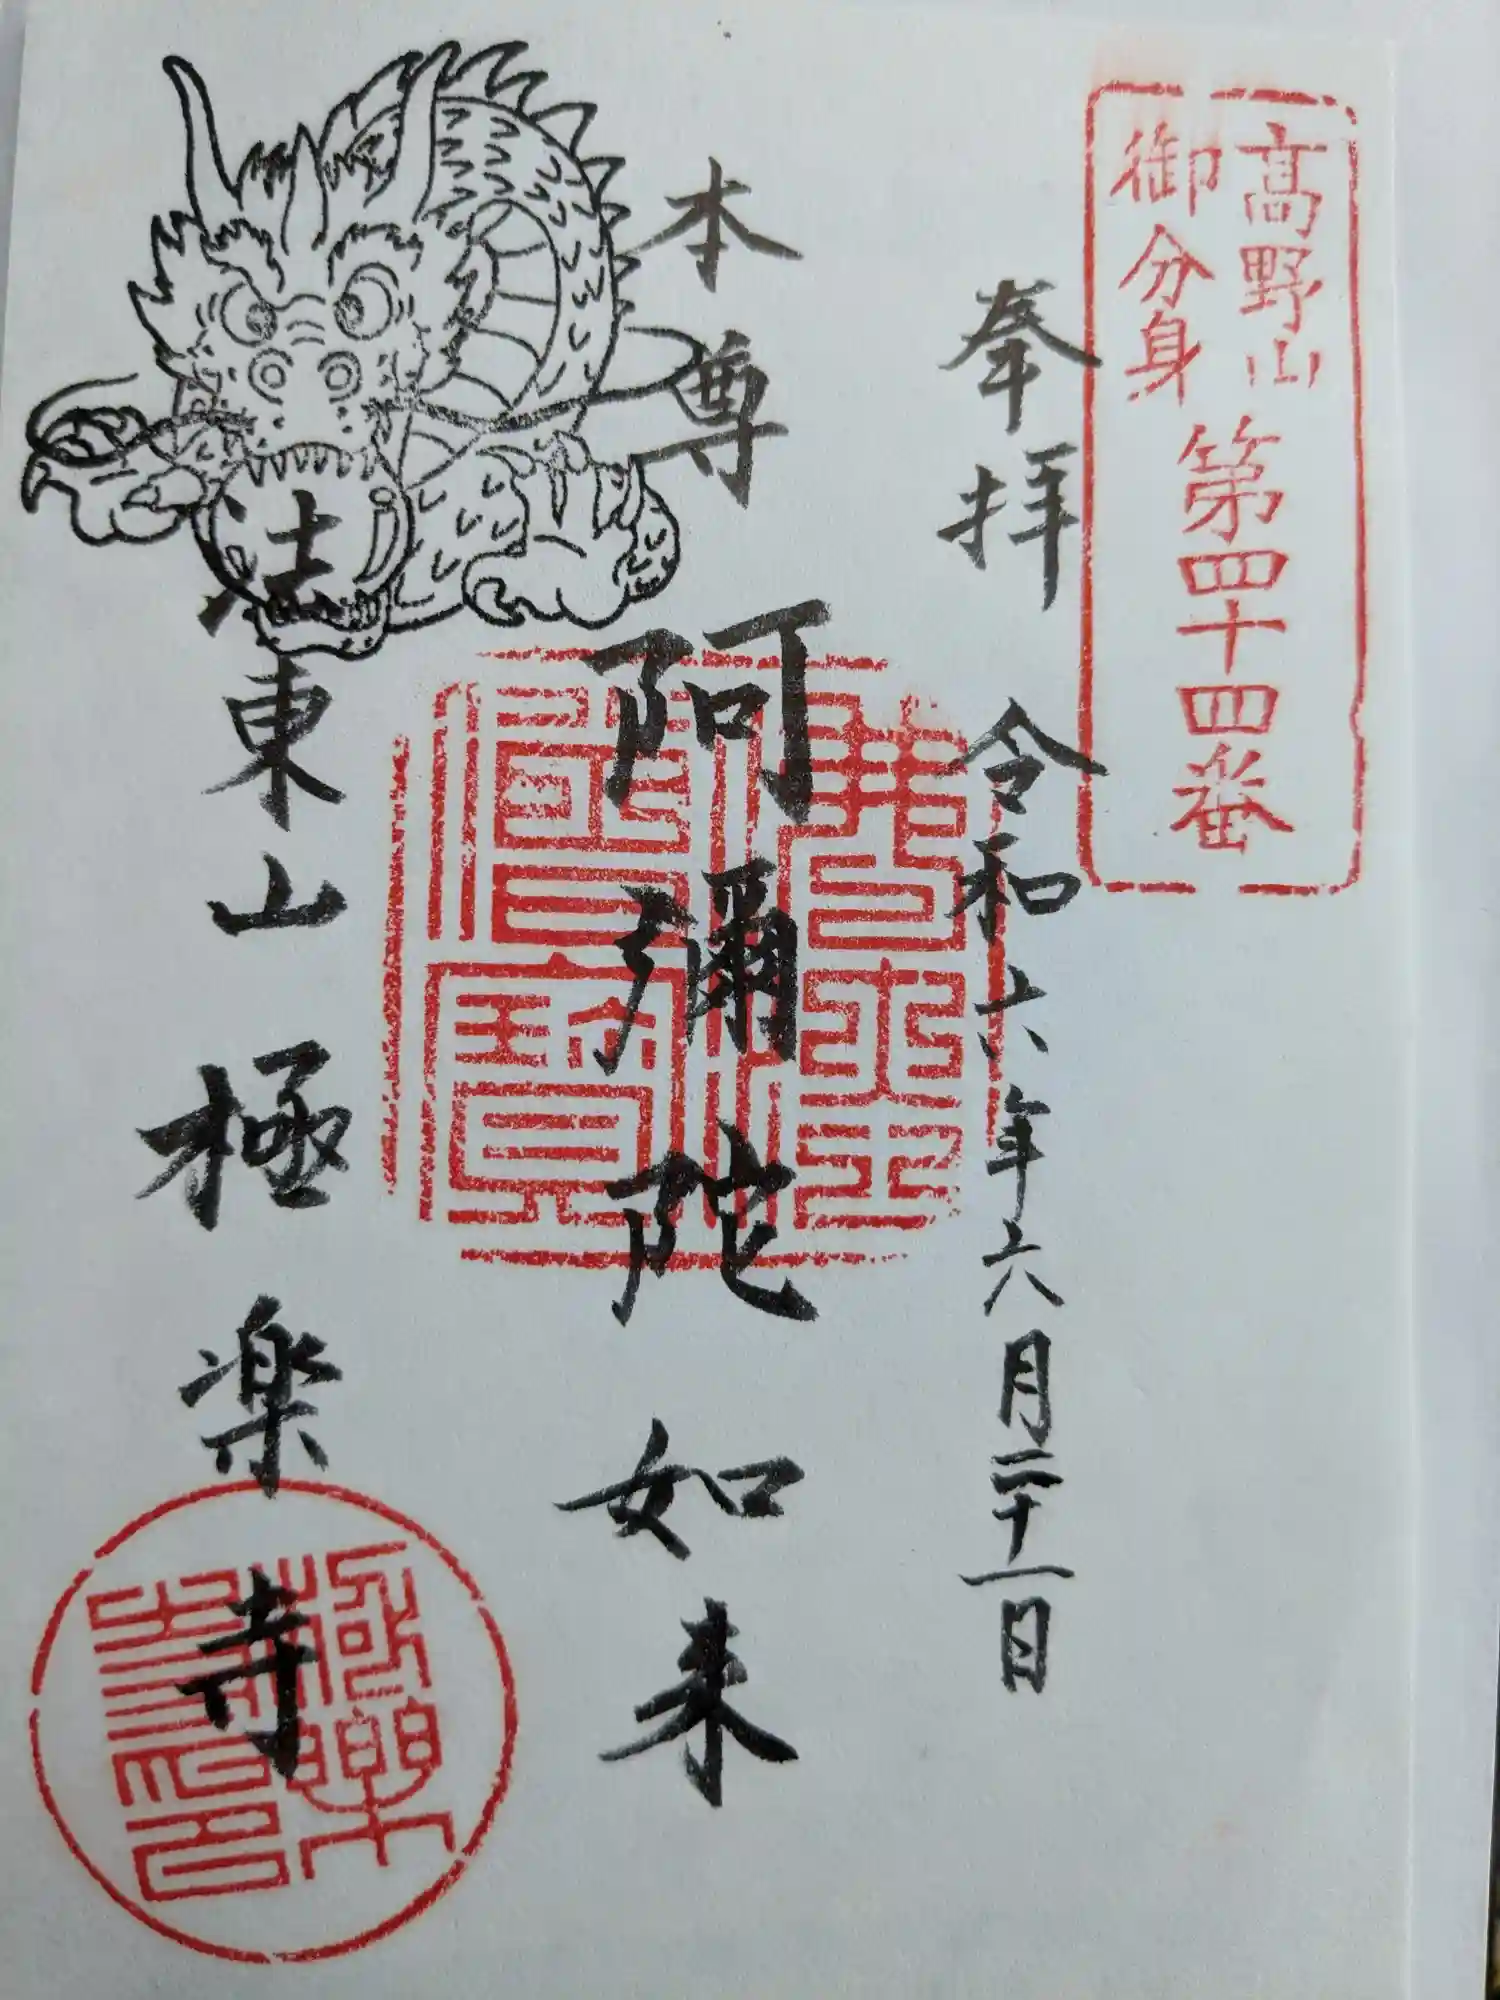 高野山
御分身
第四十四番
奉拝 令和六年六月二十一日
本尊 阿彌陀如来
法東山極楽寺
佛法僧寶
極楽
寺印